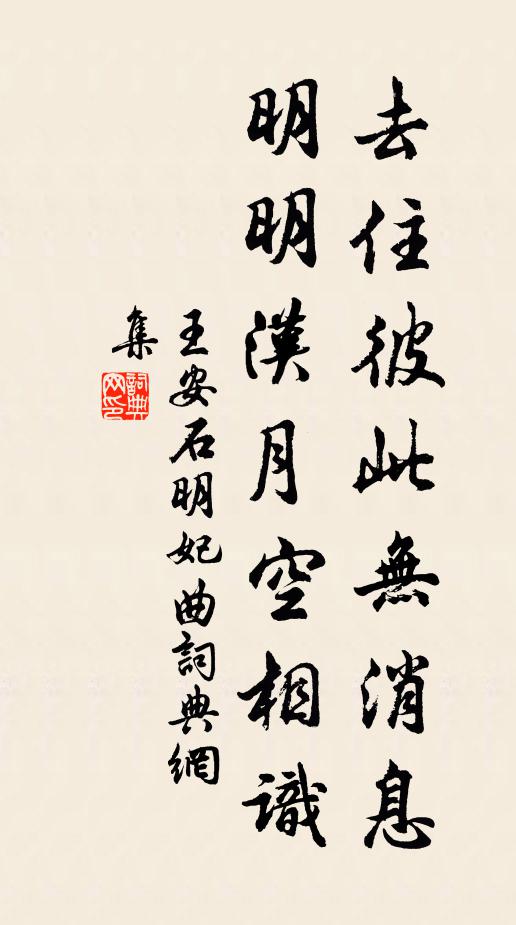 去住彼此無消息
明明漢月空相識
王安石明妃曲詞典網
集
詞典
网印